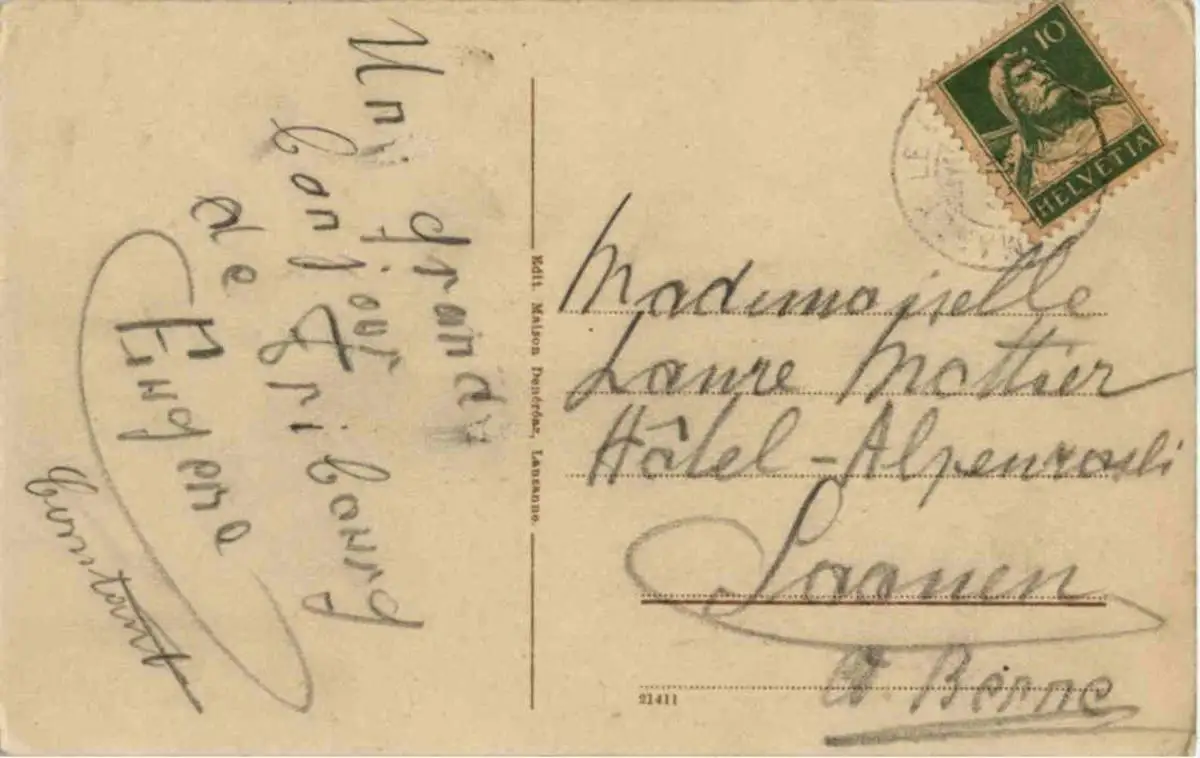 Un grand
bonjour
Fribourg
de
Constant
Edit. Maison Denéréaz, Lausanne.
10
HELVETIA
Mademoiselle
Laure Mottier
Hôtel - Alpenrösli
Saanen
Ct. Berne
21411